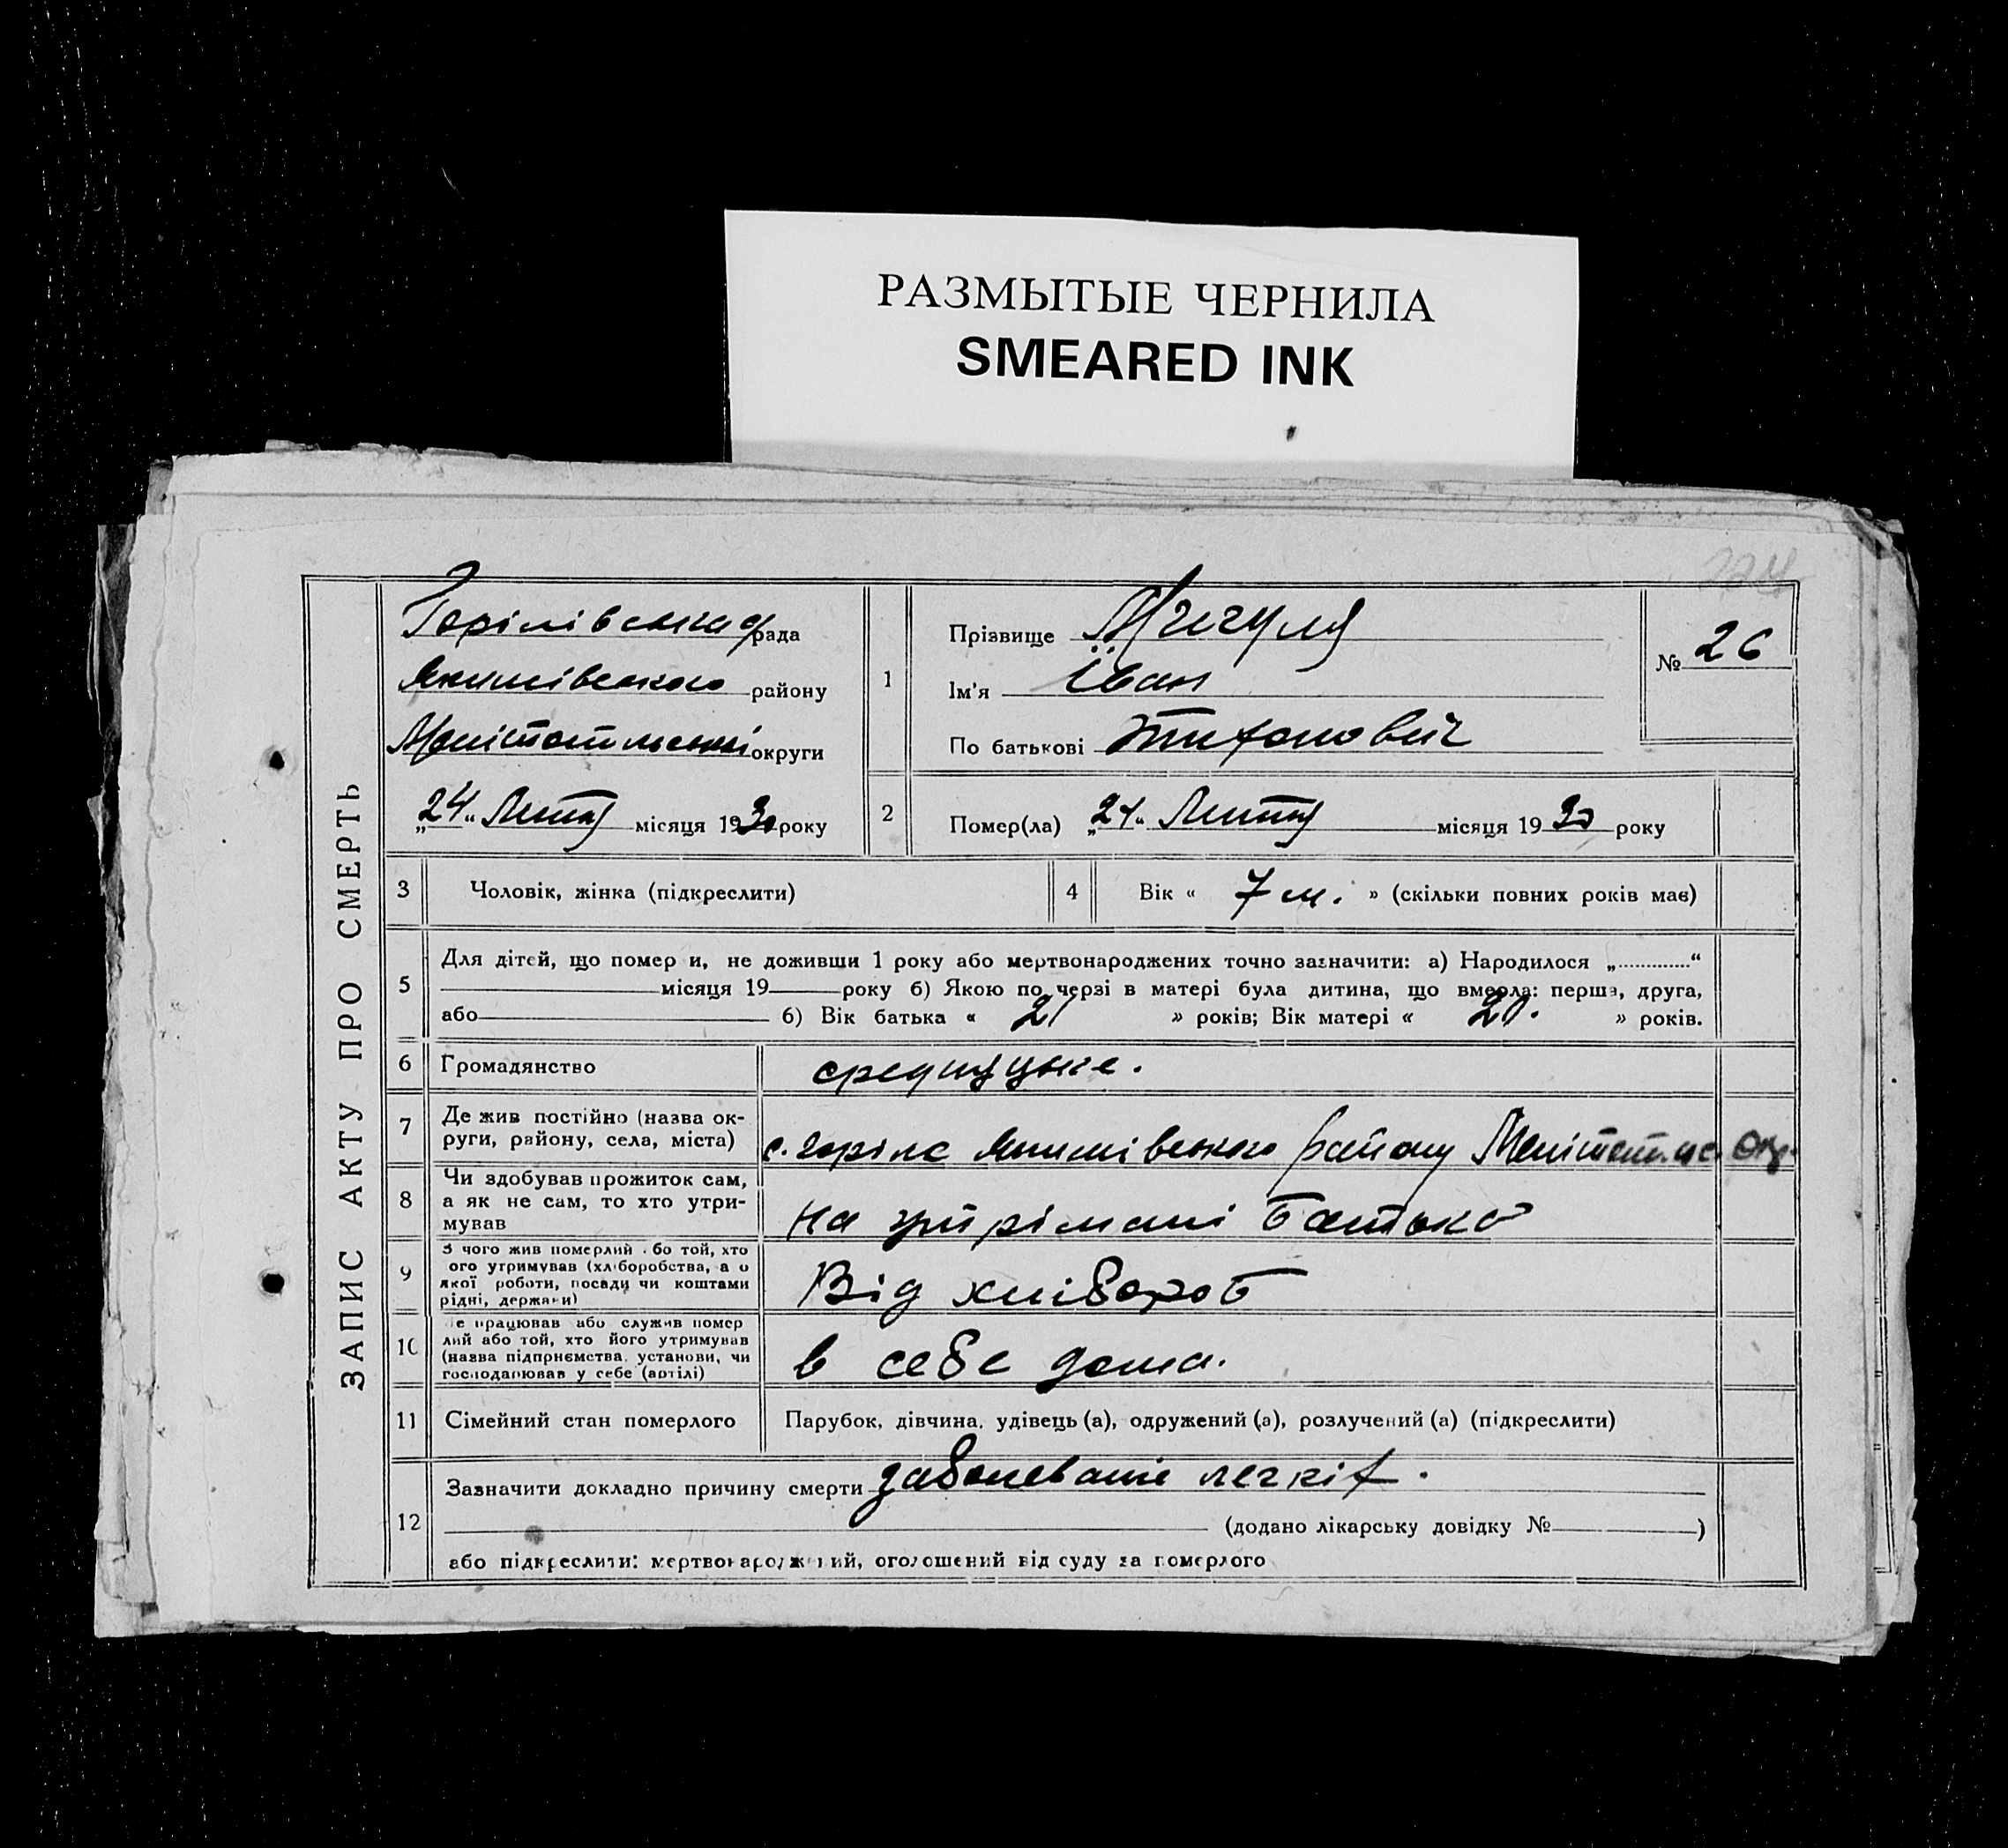 РАЗМЫТЫЕ ЧЕРНИЛА
SMEARED INK
ЗАПИС АКТУ ПРО СМЕРТЬ
Горілівська рада
Якимівського району
округи
„24“ Лютня місяця 1930 року
1
Прізвище
Ім'я Іван
По батькові
№ 26
2
Помер(ла) „24“ Лютня місяця 1930 року
3
Чоловік, жінка (підкреслити)
4
Вік « 7 м. » (скільки повних років має)
5
Для дітей, що помер и, не доживши 1 року або мертвонароджених точно зазначити: а) Народилося „.............“
місяця 19 року б) Якою по черзі в матері була дитина, що вмерла: перша, друга,
або б) Вік батька « 21 » років; Вік матері « 20. » років.
6
Громадянство
7
Де жив постійно (назва ок-
руги, району, села, міста)
с. Якимівського району
8
Чи здобував прожиток сам,
а як не сам, то хто утри-
мував
на батька
9
З чого жив померлий бо той, хто
ого утримував (хліборобства, а о
якої роботи, посади чи коштами
рідні, держави)
Від хлібороб
10
е працював або служив помер
лий або той, хто його утримував
(назва підприємства, установи, чи
господарював у себе (артілі)
в себе дома.
11
Сімейний стан померлого
Парубок, дівчина, удівець (а), одружений (а), розлучений (а) (підкреслити)
12
Зазначити докладно причину смерти заболеваніе легкіх.
(додано лікарську довідку № )
або підкреслити: мертвонароджений, оголошений від суду за померлого